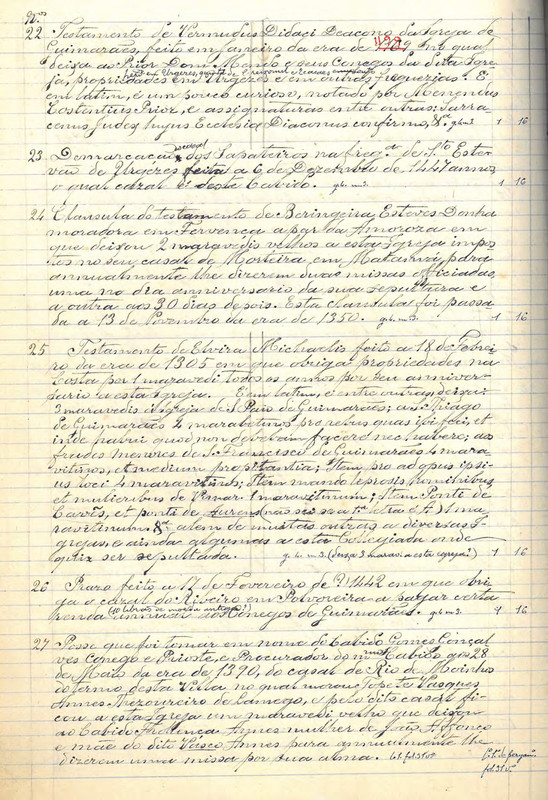 N.os
22 Testamento de Vermudus Didaci Deacono da Igreja de
Guimarães, feito em Janeiro da era de 1289 no qual
deixa ao Prior Dom Mendo e seus Conegos da dita Igre
ja, propriedades em Urgeres e em outras freguezias. É
em latim, e um pouco curioso, notado por Menendus
Costentius Prior, e assignaturas entre outras: Sarra-
cenus Judex hujus Ecclesia Diaconus confirmo, &.ª g. 4 m 3. 1 16
23 Demarcação dos Sapateiros na freg.ª de S.to Este-
vão de Urgeres feita a 6 de Dezembro de 1447 annos,
o qual cazal é deste Cabido. g. 4 m. 3. 1 16
24 Clausula do testamento de Beringeira Esteves Donha
moradora em Fervença a par da Amoroza em
que deixou 2 maravedis velhos a esta Igreja impos-
tos no seu casal de Morteira, em Matamá, para
annualmente lhe dizerem duas missas officiadas,
uma no dia anniversario da sua sepultura e
a outra aos 30 dias depois. Esta clausula foi passa
da a 13 de Novembro da era de 1350. g. 4 m. 3. 1 16
25 Testamento de Elvira Michaelis feito a 18 de Feberei
ro da era de 1305 em que obriga propriedades na
Costa por 1 maravedi todos os annos por seu anniver-
sario a esta Igreja. É em latim, e entre outras, deixa:
3 maravedis á Igreja de S. Paio de Guimarães; a S. Thiago
de Guimarães 4 marabetinos pro rebus quas ipsi feci, et
inde habui quod non debebam facere nec habere; aos
freudes menores de S. Francisco de Guimarães 4 mara-
vitinos, et medium pro pitantia; Item pro ad opus ipsi-
us loci 4 maravitinos; Item mando leprosis, hominibus
et mulieribus de Vimar. 1 maravitinum; Item Ponti de
Cavês, et ponti de (não sei se a 1.ª letra é A) 1 ma
ravitinum &.ª alem de muitas outras a diversas I-
grejas, e ainda algumas a esta Collegiada onde
quiz ser sepultada. g. 4. m. 3. (deixa 3 marav. a esta egreja?) 1 16
26 Prazo feito a 17 de Fevereiro de 1442 em que obri
ga o cazal do Ribeiro em Polvoreira a pagar certa
renda (40 libras da moeda antiga?) aos Conegos de Guimarães. g. 4 m 3. 1 16
27 Posse que foi tomar em nome do Cabido Gomes Gonçal
ves Conego e Prioste, e Procurador do m.mo Cabido aos 28
de Maio da era de 1390, do casal de Rio de Moinhos
do termo desta Villa no qual morou Vasques
Annes Thezoureiro de Lamego, e pelo dito casal fi-
cou a esta Igreja um maravedi velho que deixou
ao Cabido Annes mulher de João Affonço
e mãe do dito Vasco Annes para annualmente lhe
dizerem uma missa por sua alma.